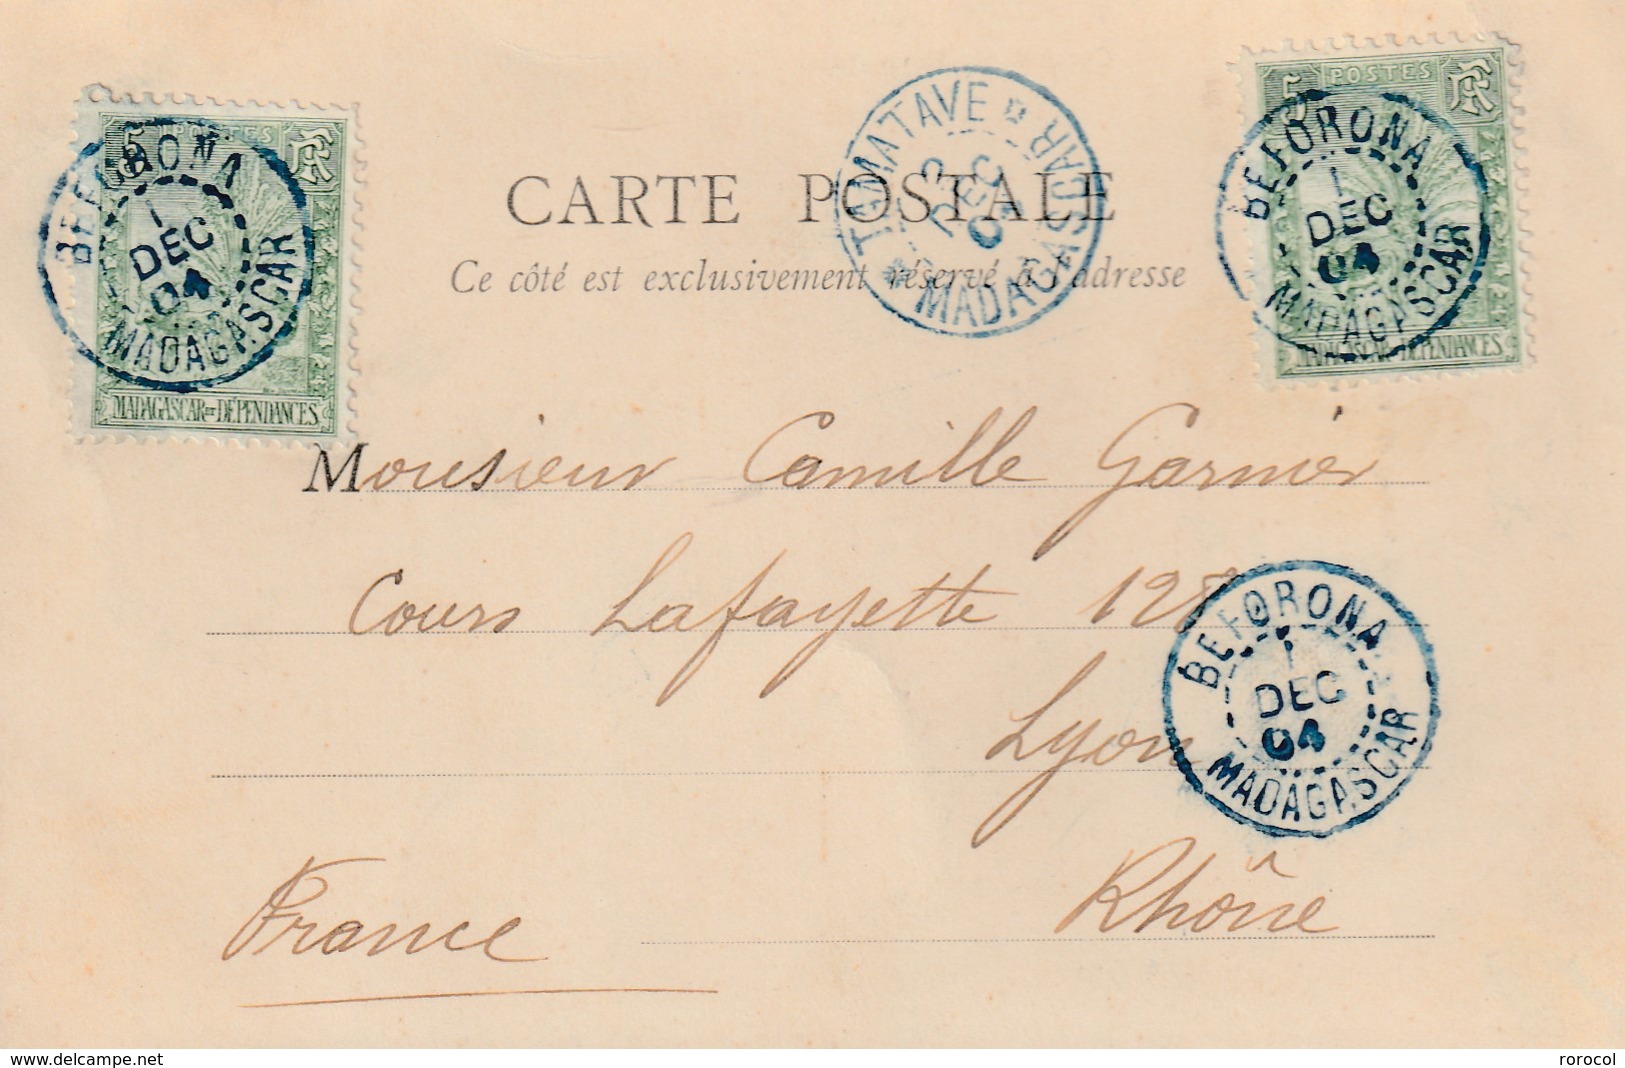 5 POSTES RF
BEFORONA
1
DEC
04
MADAGASCAR
MADAGASCAR ET DÉPENDANCES
TAMATAVE
DEC
04
MADAGASCAR
5 POSTES RF
BEFORONA
1
DEC
04
MADAGASCAR
MADAGASCAR ET DÉPENDANCES
CARTE POSTALE
Ce côté est exclusivement réservé à l'adresse
Monsieur Camille Garnier
Cours Lafayette
BEFORONA
1
DEC
04
MADAGASCAR
Lyon
Rhône
France
www.delcampe.net
rorocol